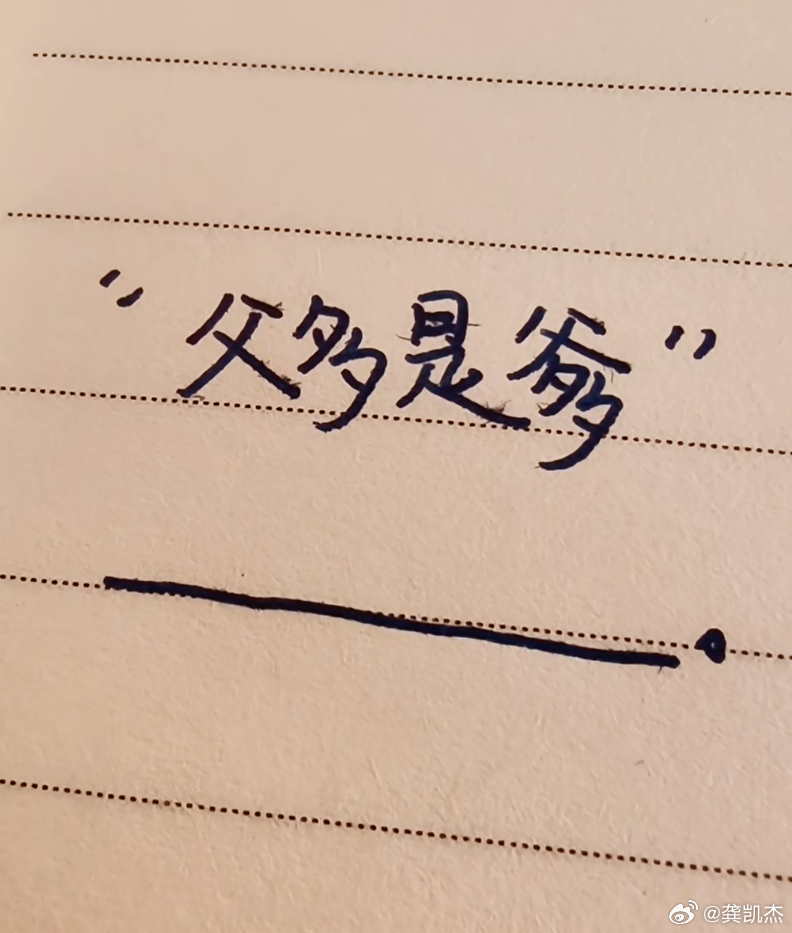 “父多是爹”
@龚凯杰